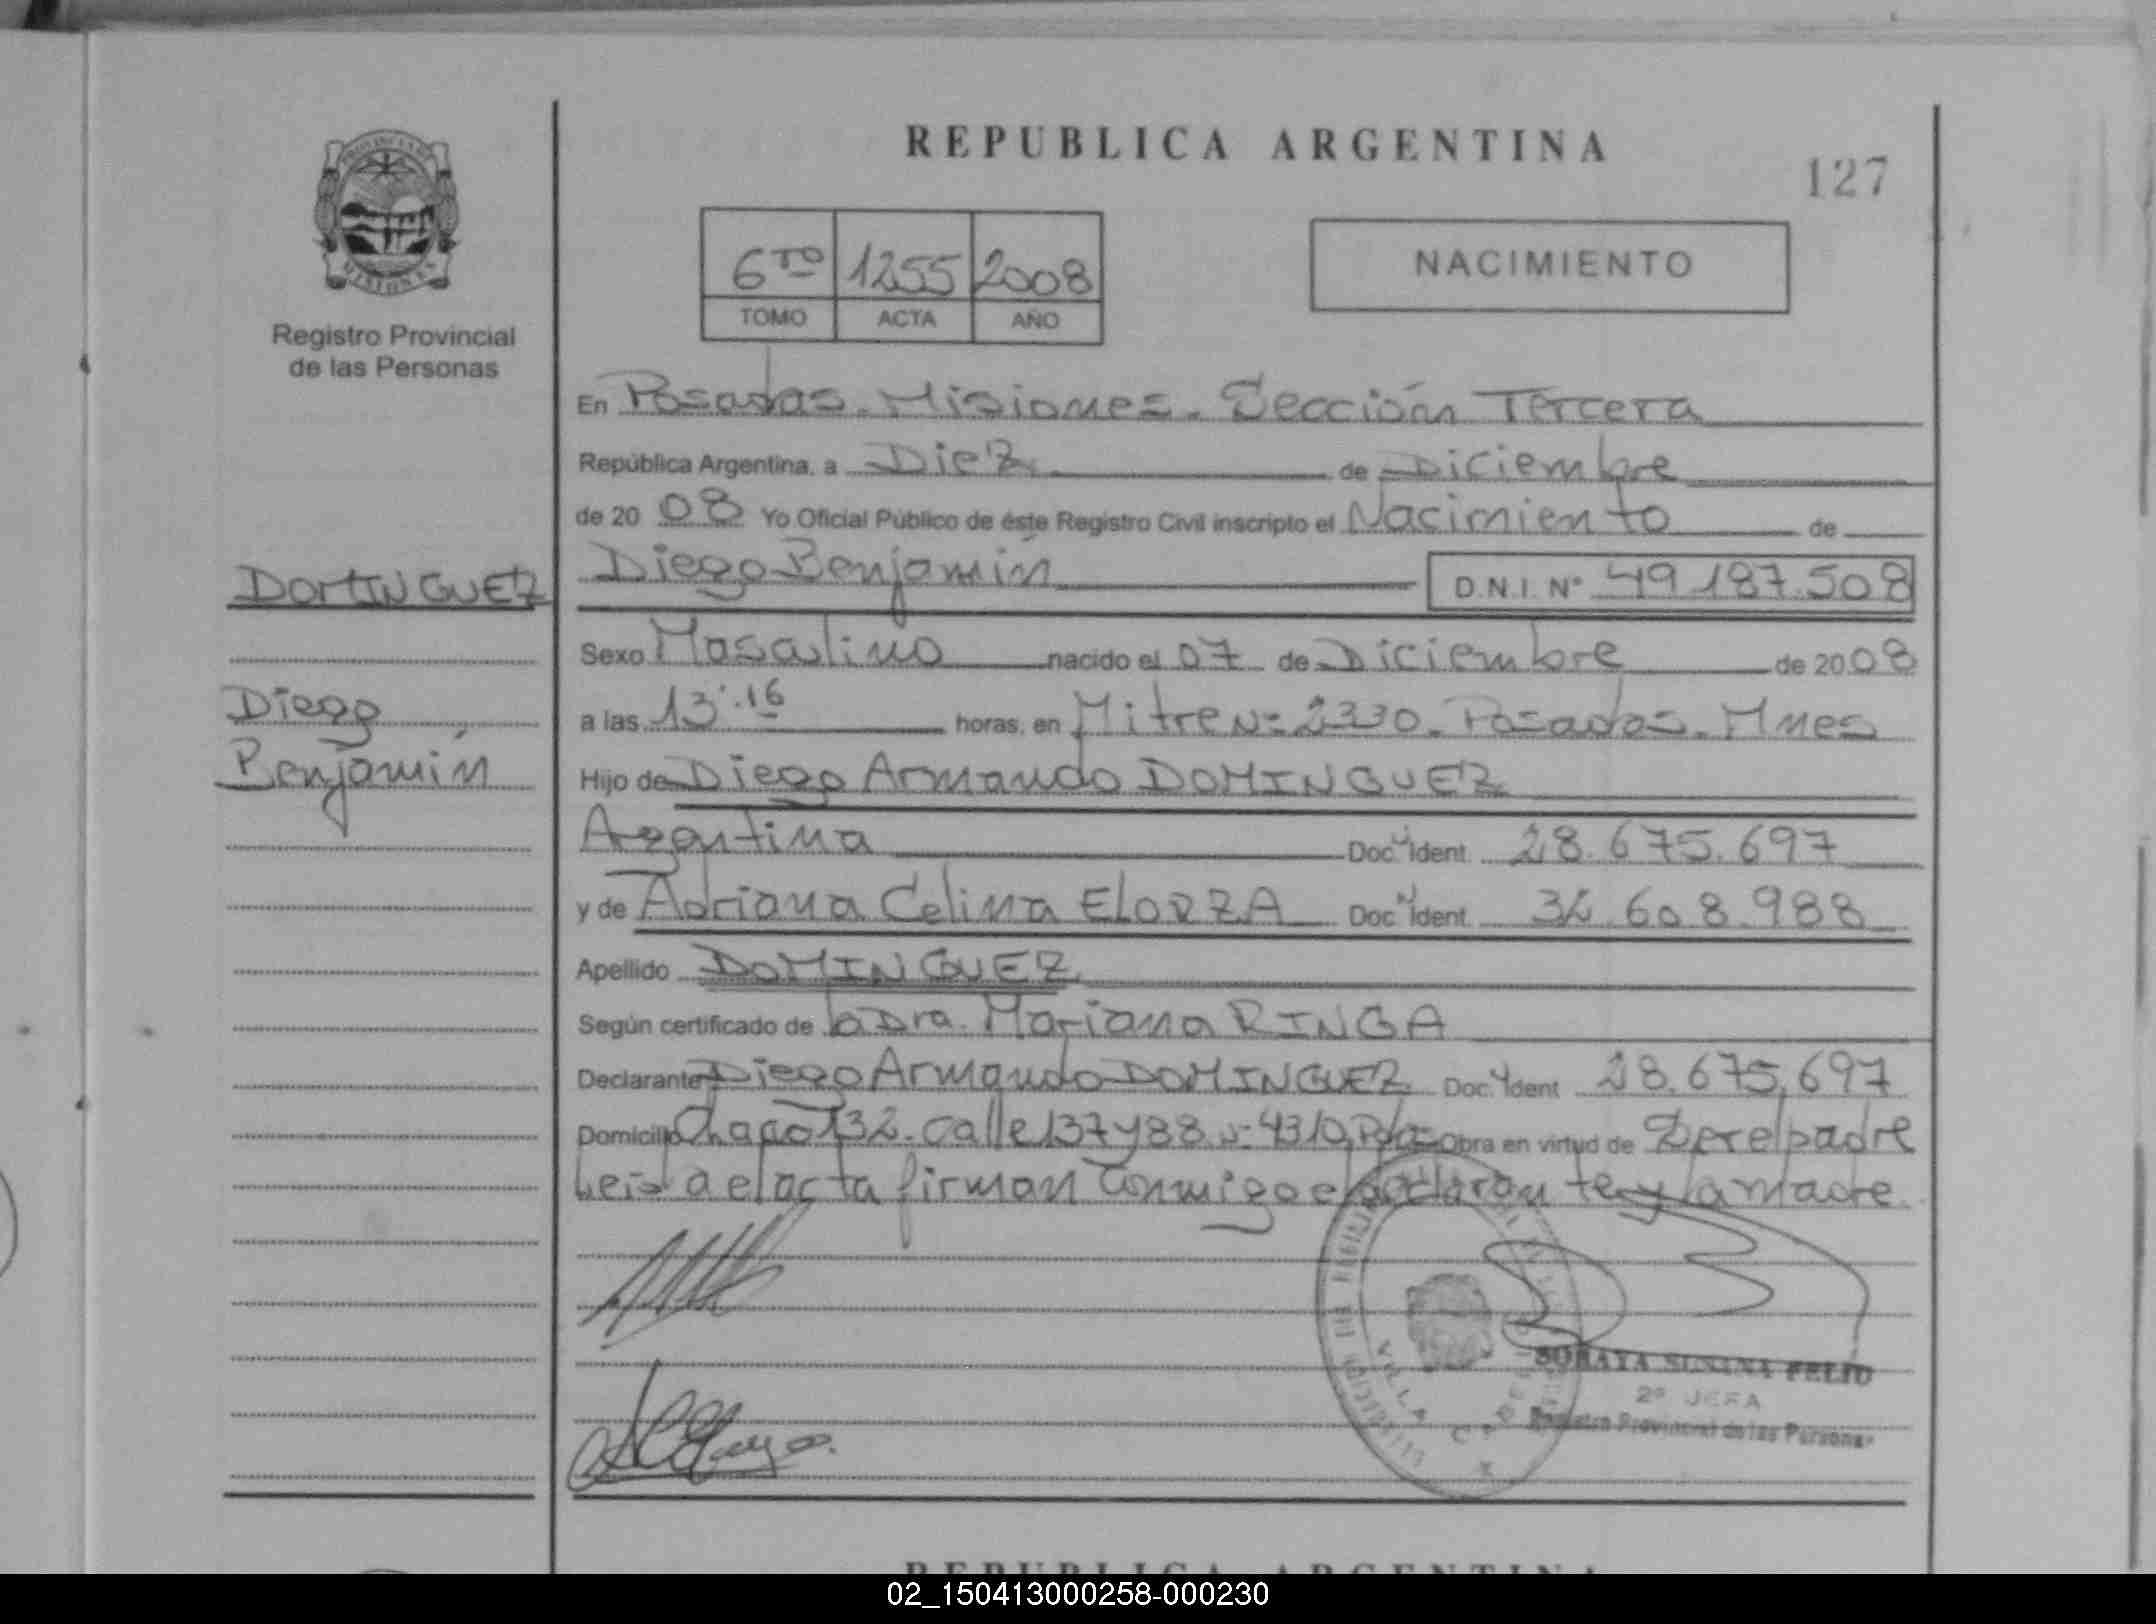 REPUBLICA ARGENTINA
127
6TO 1255 2008
TOMO ACTA AÑO
NACIMIENTO
PROVINCIA DE MISIONES
Registro Provincial
de las Personas
En Posadas. Misiones. Sección Tercera
República Argentina, a Diez de Diciembre
de 20 08 Yo Oficial Público de éste Registro Civil inscripto el Nacimiento de
Diego Benjamín D.N.I. N° 49.187.508
DOMINGUEZ
Diego
Benjamín
Sexo Masculino nacido el 07 de Diciembre de 20 08
a las 13:16 horas, en Mitre N= 2330. Posadas. Mnes
Hijo de Diego Armando DOMINGUEZ
Argentina Doc. Ident. 28.675.697
y de Adriana Celina ELORZA Doc. Ident. 608.988
Apellido DOMINGUEZ
Según certificado de la Dra. Mariana RINGA
Declarante Diego Armando DOMINGUEZ Doc. Ident. 28.675.697
Domicilio Chaco 132. Calle 137 y 88 N= 4310, Pdas Obra en virtud de Ser el padre
Leida el acta firman conmigo el declarante y la madre.
SORAYA SUSANA FELIU
2° JEFA
Registro Provincial de las Personas
REPUBLICA ARGENTINA
02_150413000258-000230